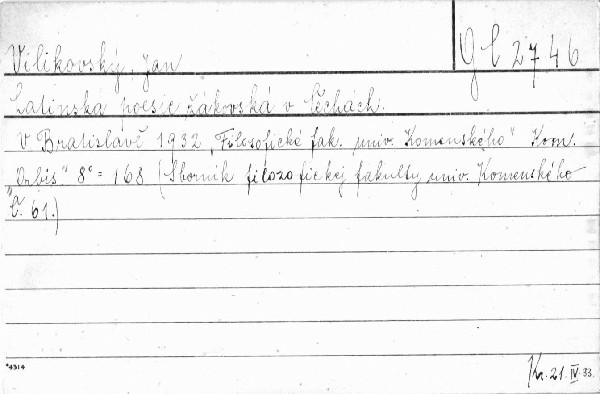 Vilikovský, Jan
Gl 2746
Latinská poesie žákovská v Čechách.
V Bratislavě 1932 „Filosofické fak. univ. Komenského" Kom.
„Orbis" 8° = 168 (Sborník filozofickej fakulty univ. Komenského
č. 61.)
*4314
Kr. 21. IV. 33.